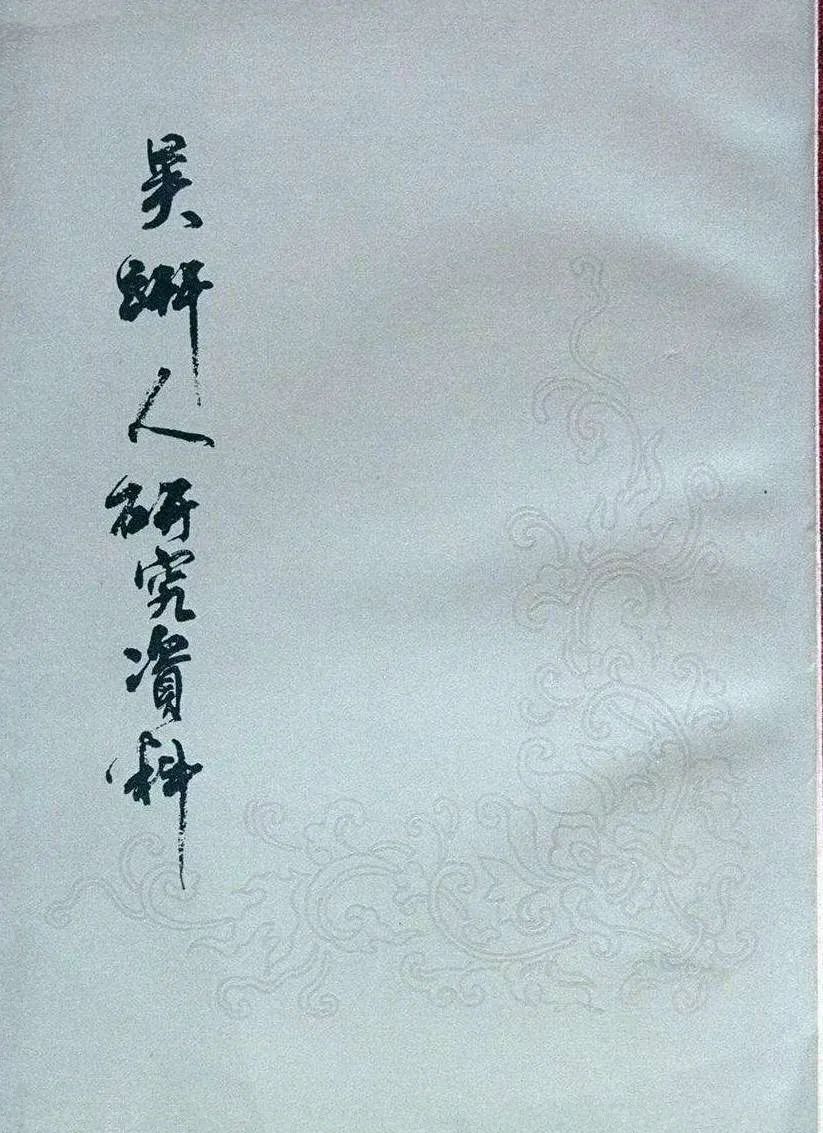 吴趼人研究资料